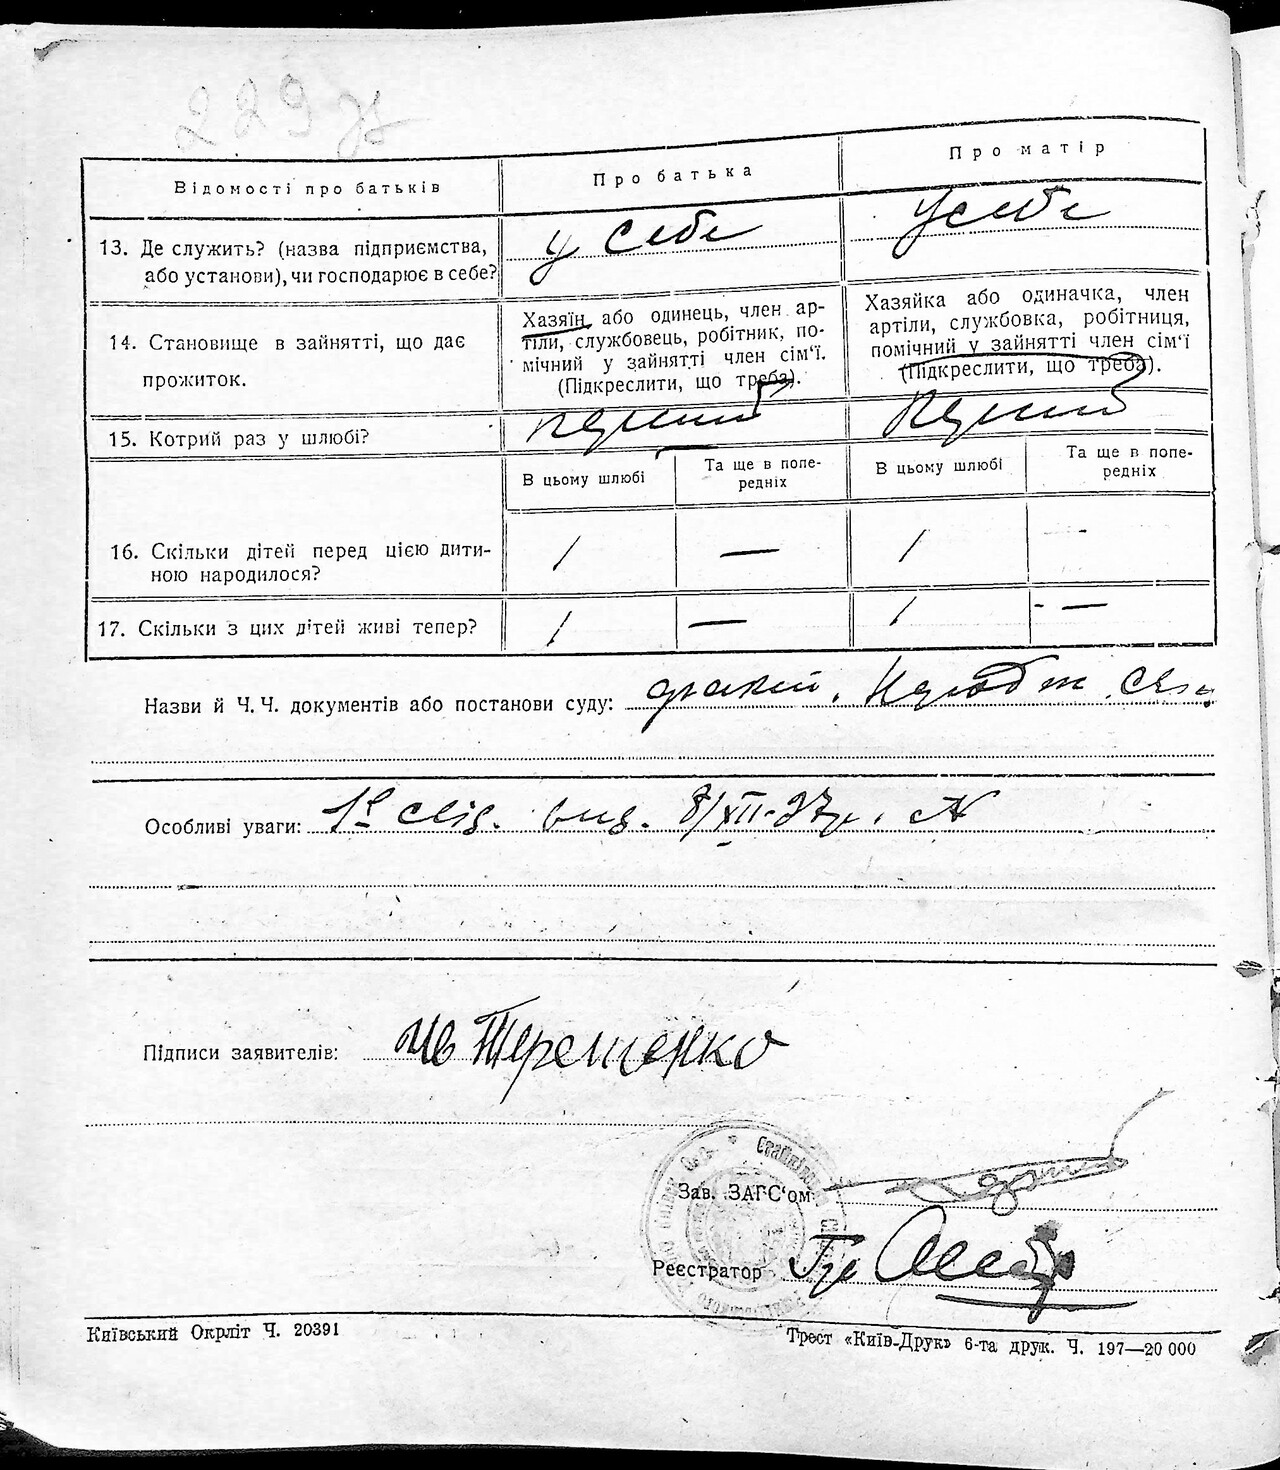 229 зв
Відомості про батьків
Про батька
Про матір
13. Де служить? (назва підприємства, або установи), чи господарює в себе?
у себе
у себе
14. Становище в зайнятті, що дає прожиток.
Хазяїн, або одинець, член ар-
тіли, службовець, робітник, по-
мічний у зайнятті член сім'ї.
(Підкреслити, що треба).
Хазяйка або одиначка, член
артіли, службовка, робітниця,
помічний у зайнятті член сім'ї
(Підкреслити, що треба).
15. Котрий раз у шлюбі?
перший
перший
В цьому шлюбі
Та ще в попе-
редніх
В цьому шлюбі
Та ще в попе-
редніх
16. Скільки дітей перед цією дити-
ною народилося?
1 — 1 -
17. Скільки з цих дітей живі тепер?
1 — 1 -—
Назви й Ч. Ч. документів або постанови суду:
Особливі уваги: свід. вид. 8/XII-27р.
Підписи заявителів: Ив Терешенко
Зав. ЗАГС'ом
Реєстратор
Київський Окрліт Ч. 20391
Трест «Київ-Друк» 6-та друк. Ч. 197—20 000